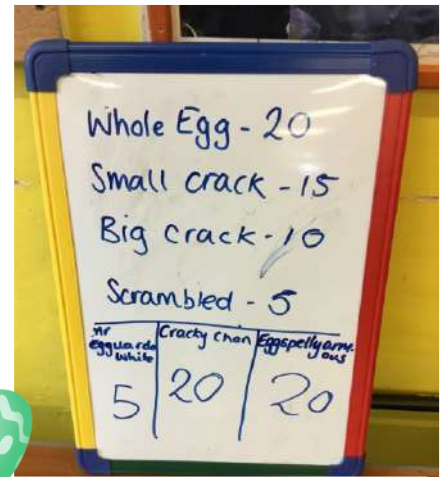 Whole Egg - 20
Small crack - 15
Big crack - 10
Scrambled - 5
Mr egguardo white
Cracky chan
Eggspellyarmious
5
20
20